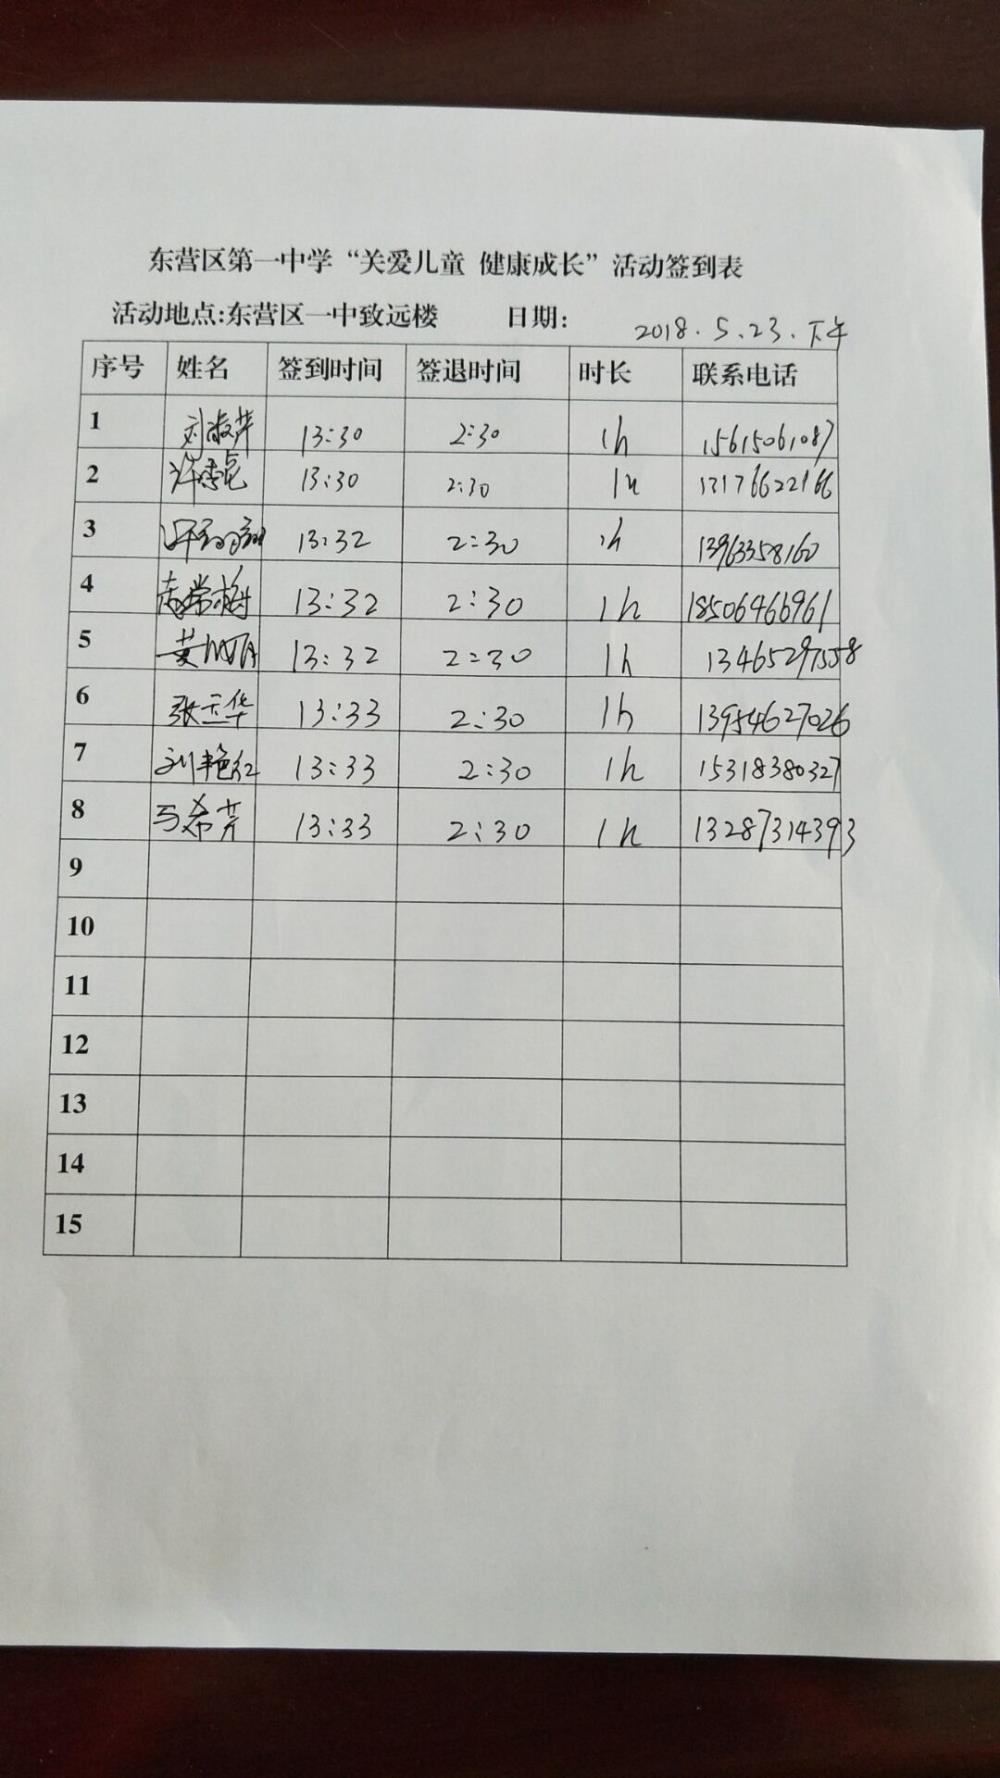 东营区第一中学“关爱儿童 健康成长”活动签到表
活动地点:东营区一中致远楼 日期: 2018.5.23.下午
序号 姓名 签到时间 签退时间 时长 联系电话
1 刘淑芹 13:30 2:30 1h 15615061087
2 13:30 2:30 1h 13176622166
3 13:32 2:30 1h 13963358160
4 13:32 2:30 1h 18506466961
5 13:32 2:30 1h 13465297558
6 张玉华 13:33 2:30 1h 13954627026
7 刘艳红 13:33 2:30 1h 15318380327
8 马希芹 13:33 2:30 1h 13287314393
9
10
11
12
13
14
15